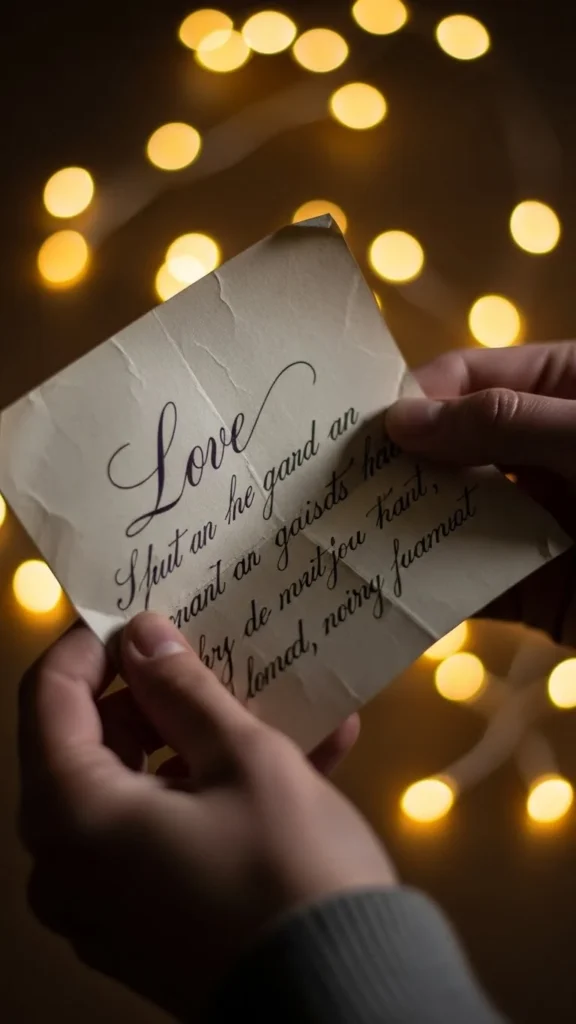 Love
Sfuit an he gard an
mant an gaisds hai
hry de mritjou hant,
lomed, noiry fuamat